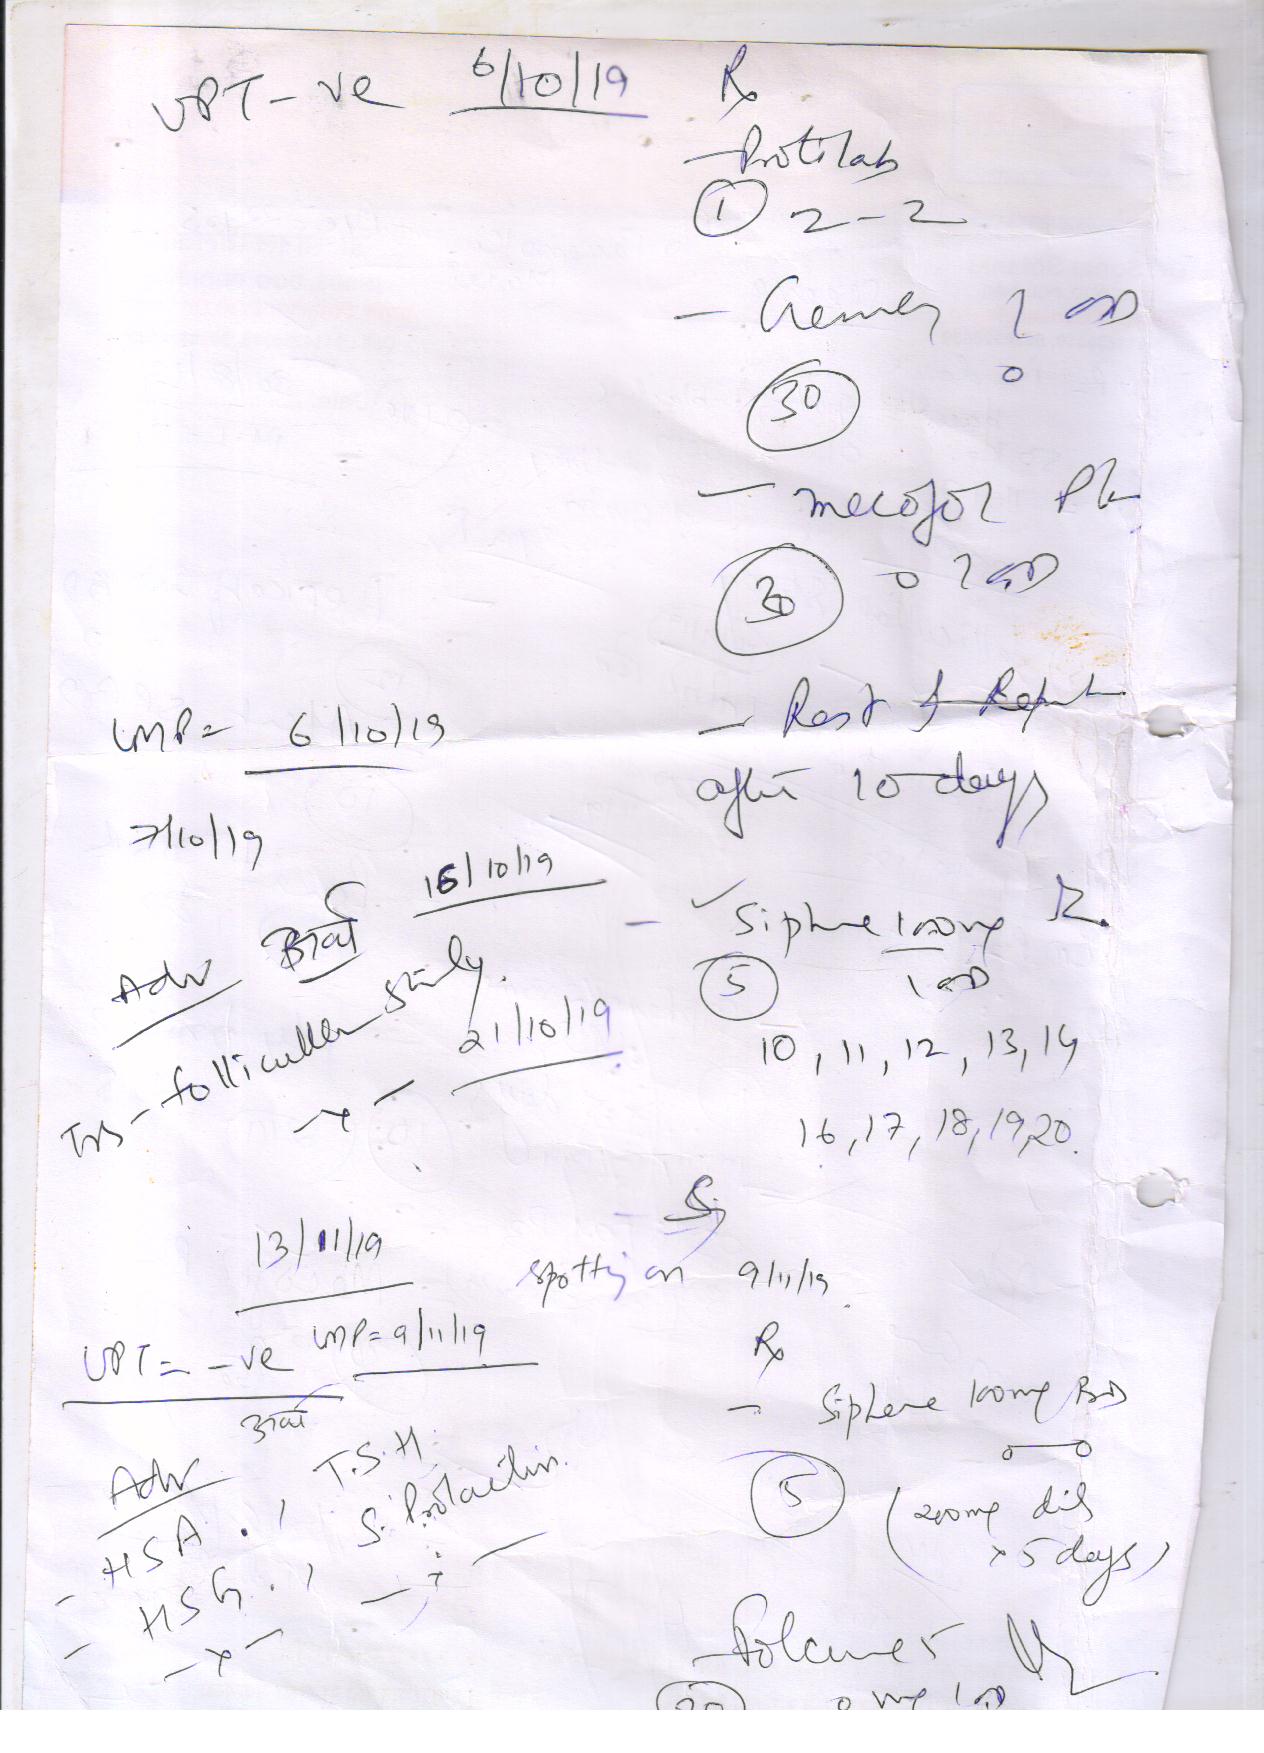 UPT - ve 6/10/19 Rx
- Protilab
① 2-2
- 1 OD
30
- mecofol Pl
30 0 1 OD
LMP= 6/10/19
- Rest & Report
after 10 days
7/10/19
15/10/19
- ✓ Siphene 100mg
5 1 OD
Adv
TVS - follicular study.
- x - 21/10/19
10, 11, 12, 13, 14
16, 17, 18, 19, 20.
13/11/19
spotting on 9/11/19.
UPT = -ve LMP= 9/11/19
Rx
- Siphene 100mg BD
5
(200mg dil
x 5 days)
Adv
- HSA. , T.S.H.
- HSG. , S. Prolactin.
- x - - x -
5